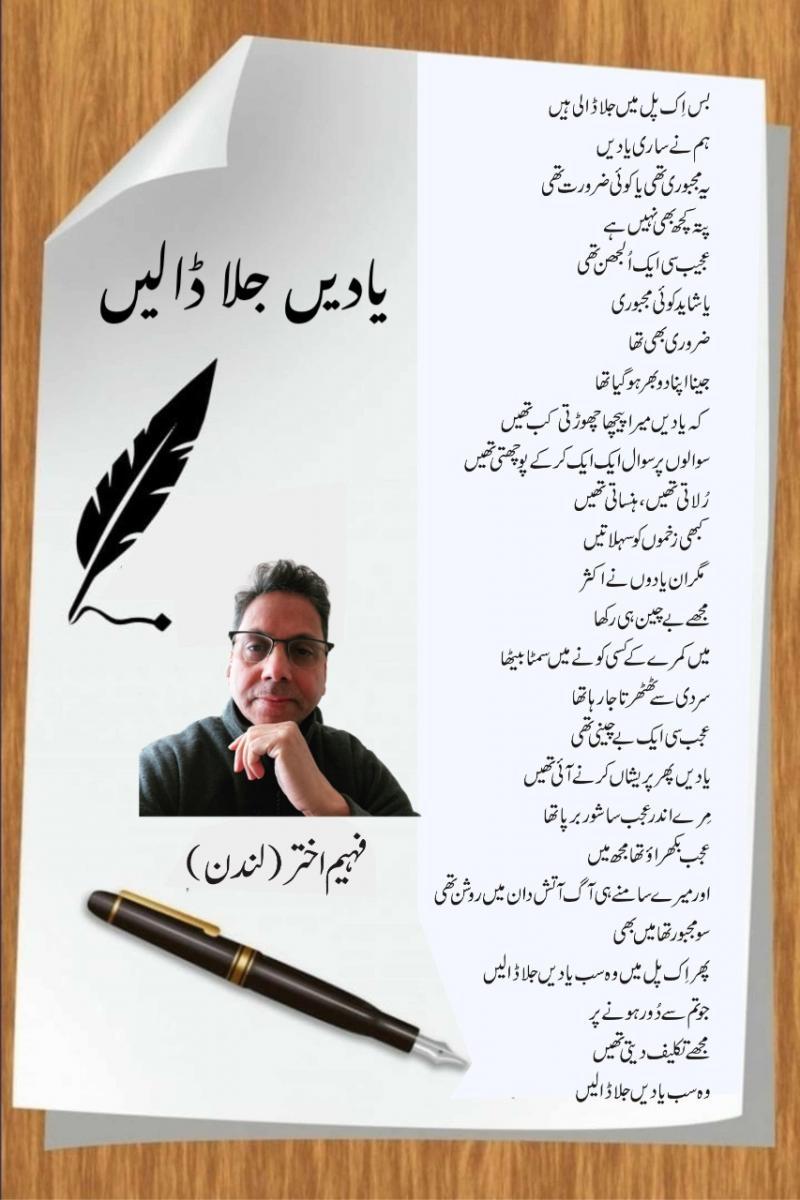 یادیں جلا ڈالیں
فہیم اختر (لندن)
بس اِک پل میں جلا ڈالی ہیں
ہم نے ساری یادیں
یہ مجبوری تھی یا کوئی ضرورت تھی
پتہ کچھ بھی نہیں ہے
عجیب سی ایک اُلجھن تھی
یا شاید کوئی مجبوری
ضروری بھی تھا
جینا اپنا دوبھر ہو گیا تھا
کہ یادیں میرا پیچھا چھوڑتی کب تھیں
سوالوں پر سوال ایک ایک کر کے پوچھتی تھیں
رُلاتی تھیں، ہنساتی تھیں
کبھی زخموں کو سہلاتیں
مگر ان یادوں نے اکثر
مجھے بے چین ہی رکھا
میں کمرے کے کسی کونے میں سمٹا بیٹھا
سردی سے ٹھٹھرتا جا رہا تھا
عجب سی ایک بے چینی تھی
یادیں پھر پریشاں کرنے آئی تھیں
مِرے اندر عجب سا شور برپا تھا
عجب بکھراؤ تھا مجھ میں
اور میرے سامنے ہی آگ آتش دان میں روشن تھی
سو مجبور تھا میں بھی
پھر اِک پل میں وہ سب یادیں جلا ڈالیں
جو تم سے دُور ہونے پر
مجھے تکلیف دیتی تھیں
وہ سب یادیں جلا ڈالیں